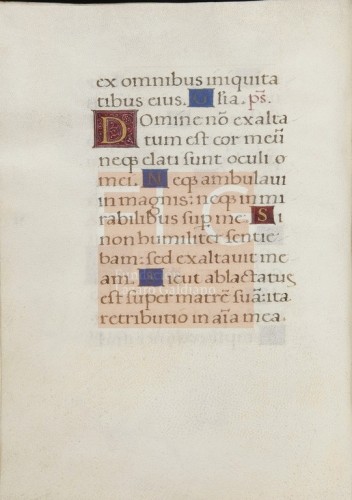 ex omnibus iniquita
tibus eius. Glia. ps.
Domine nō exalta
tum est cor meū
neqꝫ elati sunt oculi o
mei. Neqꝫ ambulaui
in magnis: neqꝫ in mi
rabilibus sup me. Si
non humiliter sentie
bam: sed exaltauit me
am. Sicut ablactatus
est super matrē suā: ita
retributio in aīa mea.
FLG